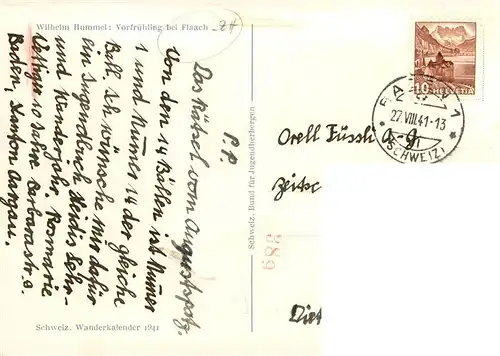 Wilhelm Hummel: Vorfrühling bei Flaach
ZH
P.P.
Das Rätsel vom Augustspatz.
Von den 14 Bällen ist Numer
1 und Numer 14 der Gleiche
Ball. Ich wünsche mir dafür
ein Jugendbuch Heidis Lehr-
und Wanderjahr. Rosmarie
10 Jahre Barbarastr. 9.
Baden, Kanton Aargau.
Schweiz. Wanderkalender 1941
Schweiz. Bund für Jugendherbergen
10 HELVETIA
BADEN 1
27.VIII.41-13
(SCHWEIZ)
Orell Füssli A-G.
Zeitsc
889
Diet